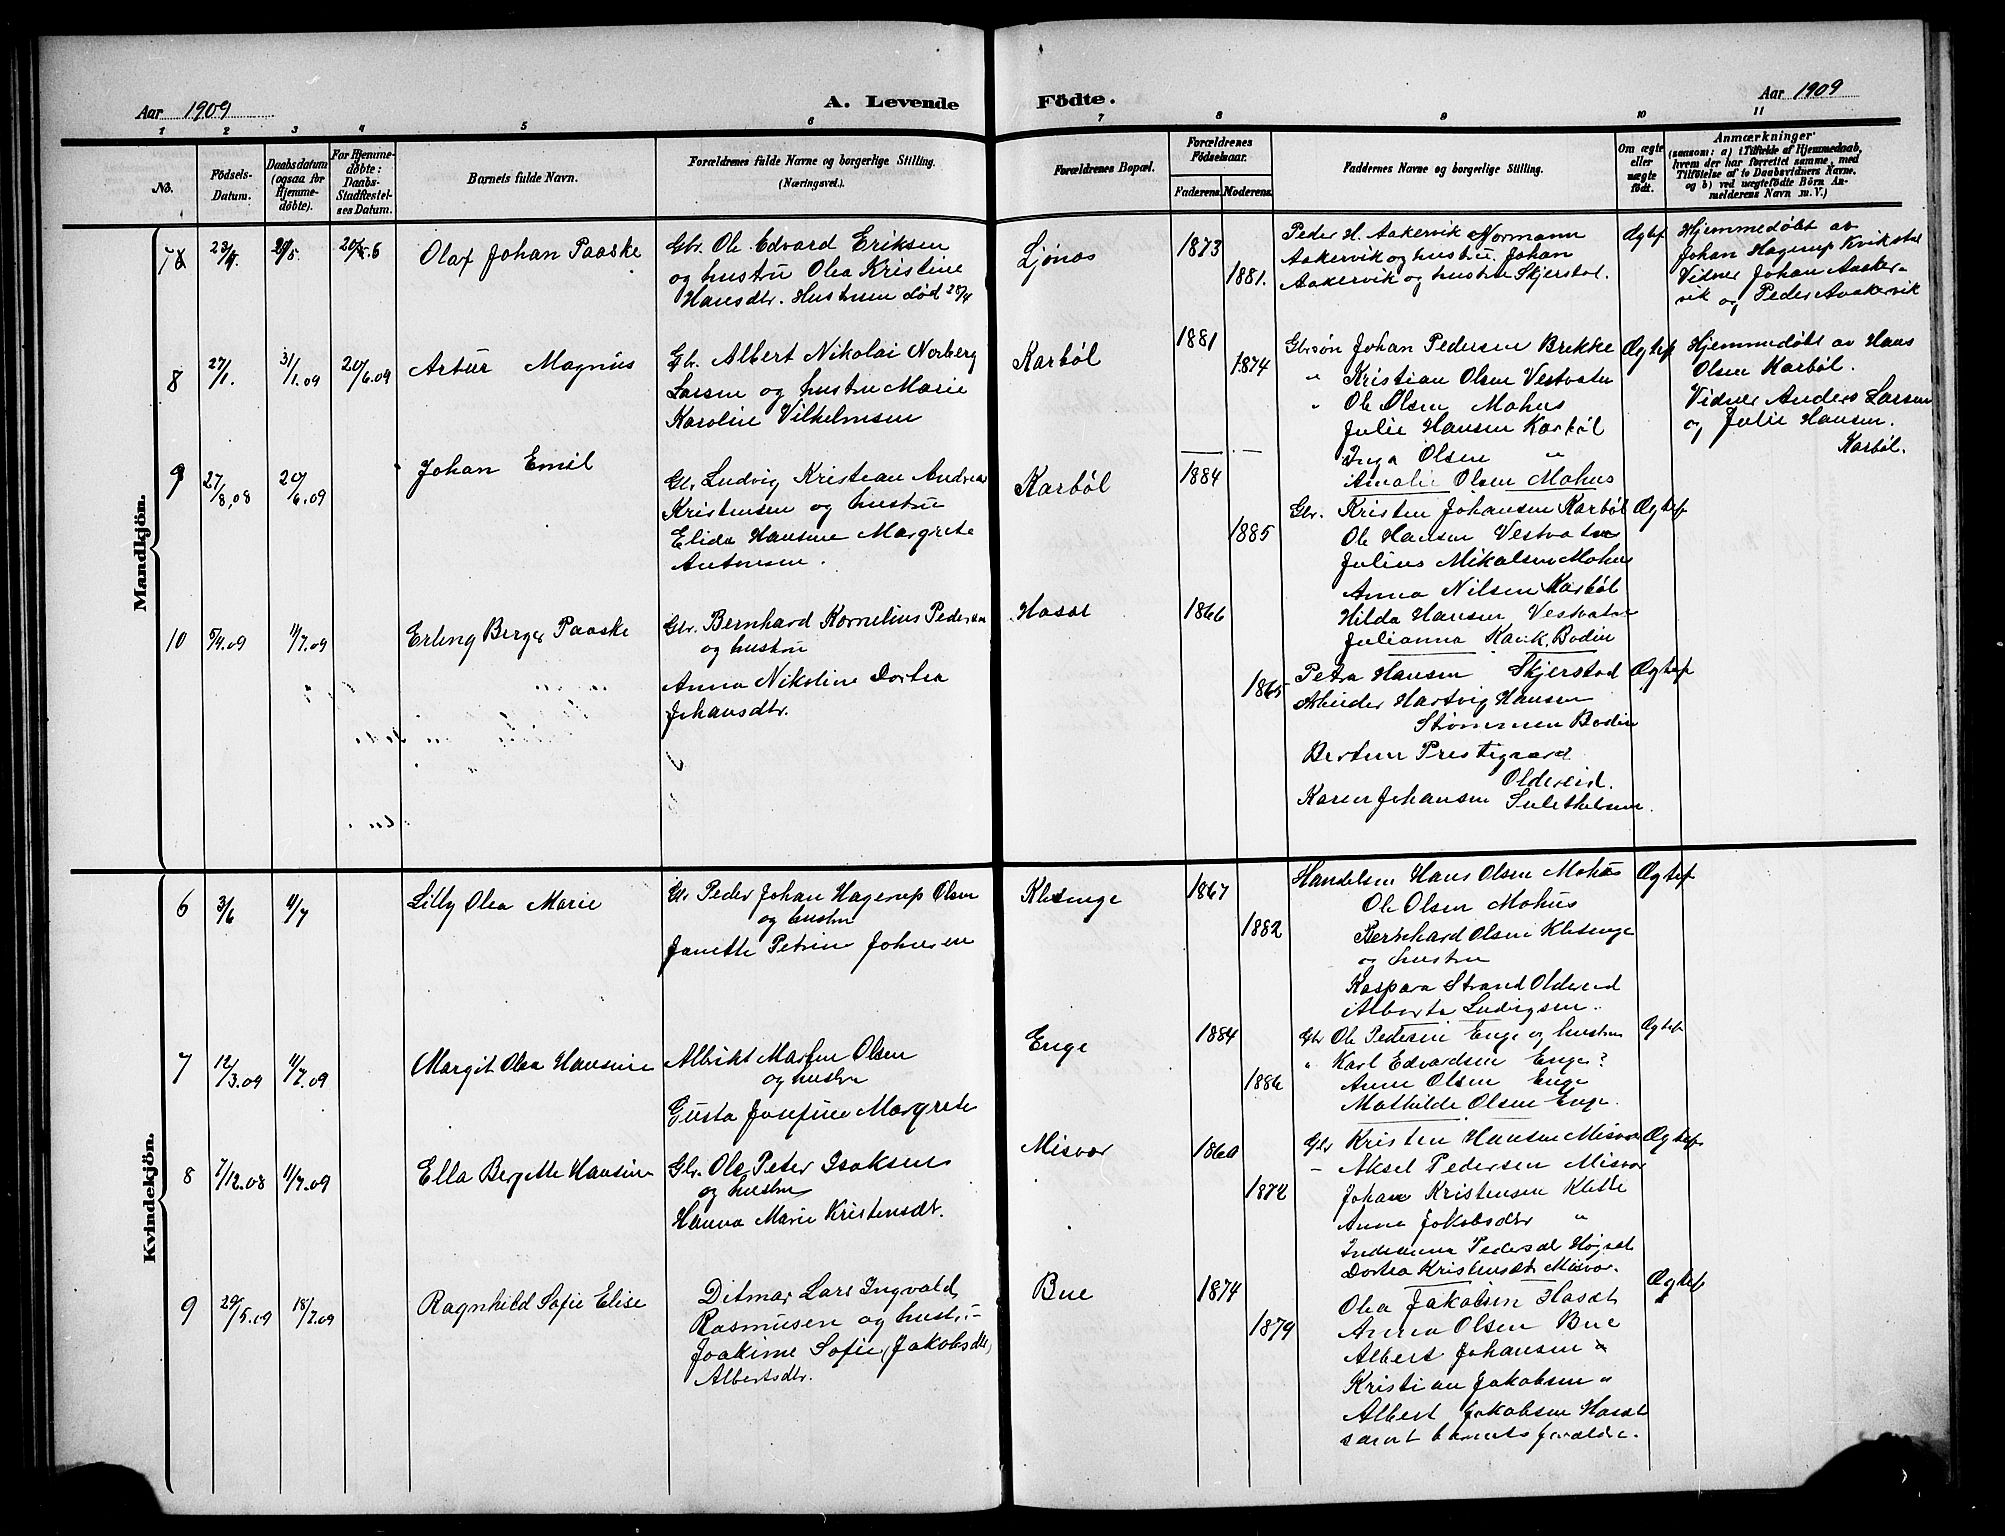 Aar 1909
A. Levende
Födte.
Aar 1909
1 2 3 4 5 6 7 8 9 10 11
No.
Födsels-
Datum.
Daabsdatum
(ogsaa for
Hjemme-
döbte).
For Hjemme-
döbte:
Daabs-
Stadfæstel-
ses Datum.
Barnets fulde Navn.
Forældrenes fulde Navne og borgerlige Stilling.
(Næringsvei.)
Forældrenes Bopæl.
Forældrenes
Födselsaar.
Faderens. Moderens.
Faddernes Navne og borgerlige Stilling.
Om ægte
eller
uægte
födt.
Anmærkninger
(saasom: a) i Tilfælde af Hjemmedaab,
hvem der har forrettet samme, med
Tilföielse af to Daabsvidners Navne,
og b) ved uægtefödte Börn An-
melderens Navn m. V.)
Mandkjön.
23/4 20/6
Olaf Johan Paaske
Gbr. Ole Edvard Eriksen
og hustru Olea Kristine
Hansdtr. Hustruen død 28/4
Ljønes
1873
1881.
Peder H. Aakervik Normann
Aakervik og hustru. Johan
Aakervik og hustru Skjerstad.
Ægtef
Hjemmedøbt av
Johan Hagerup Kvikstad
Vidner Johan Aaker-
vik og Peder Aakervik
8 27/1. 31/1.09 20/6.09
Artur Magnus
Gbr. Albert Nikolai Norberg
Larsen og hustru Marie
Karoline Vilhelmsen
Karbøl
1881
1874
Gbrsøn Johan Pedersen Brekke
" Kristian Olsen Vestvatn
" Ole Olsen Mohus
Julie Hansen Karbøl
Inga Olsen "
Amalie Olsen Mohus
Ægtef
Hjemmedøbt av Hans
Olsen Karbøl.
Vidner Anders Larsen
og Julie Hansen.
Karbøl.
9 27/8.08 20/6.09
Johan Emil
Gbr Ludvig Kristian Andreas
Kristensen og hustru
Elida Hansine Margrete
Antonsen.
Karbøl
1884
1885
Gbr. Kristen Johansen Karbøl
Ole Hansen Vestvatn
Julius Mikalsen Mohus
Anna Nilsen Karbøl
Hilda Hansen Vestvatn
Julianna Kvik. Bodin
Ægtef
10 5/4.09 11/7.09
Erling Berger Paaske
Gbr. Bernhard Kornelius Pedersen
og hustru
Anna Nikoline Dortea
Johansdtr.
Hasæt
1866
1865
Petra Hansen Skjerstad
Arbeider Hartvig Hansen
Strømmen Bodin
Bertine Prestegaard
Oldereid.
Karen Johansen Sulithelma.
Ægtef
Kvindekjön.
6 3/6 11/7
Lilly Olea Marie
Gbr Peder Johan Hagerup Olsen
og hustru
Janette Petrine Johnsen
Kletenge
1867
1882
Handelsm Hans Olsen Mohus
Ole Olsen Mohus
Bernhard Olsen Kletenge
og hustru
Kaspara Strand Oldereid
Alberte Ludvigsen.
Ægtef
7 12/3.09 11/7.09
Margit Olea Hansine
Albrikt Martin Olsen
og hustru
Gusta Josefine Margrete
Enge
1884
1886
Gbr Ole Pedersen Enge og hustru
" Karl Edvardsen Enge?
Anne Olsen Enge
Mathilde Olsen Enge.
Ægtef
8 7/12.08 11/7.09
Ella Bergitte Hansine
Gbr. Ole Peter Isaksen
og hustru
Hanna Marie Kristensdt.
Misvær
1860
1872
Gbr Kristen Hansen Misvær
- Aksel Pedersen Misvær
Johan Kristensen Klette
Anna Jakobsdtr "
Indianna Pedersdt Høgset
Dortea Kristensdt Misvær.
Ægtef
9 29/5.09 18/7.09
Ragnhild Sofie Elise
Ditmar Lars Ingvald
Rasmussen og hustru
Joakime Sofie (Jakobsdt)
Albertsdtr.
Bue
1874
1879
Olea Jakobsen Hasæt
Anna Olsen Bue
Albert Johansen "
Kristian Jakobsen "
Albert Jakobsen Hasæt
samt barnets forældre.
Ægtef